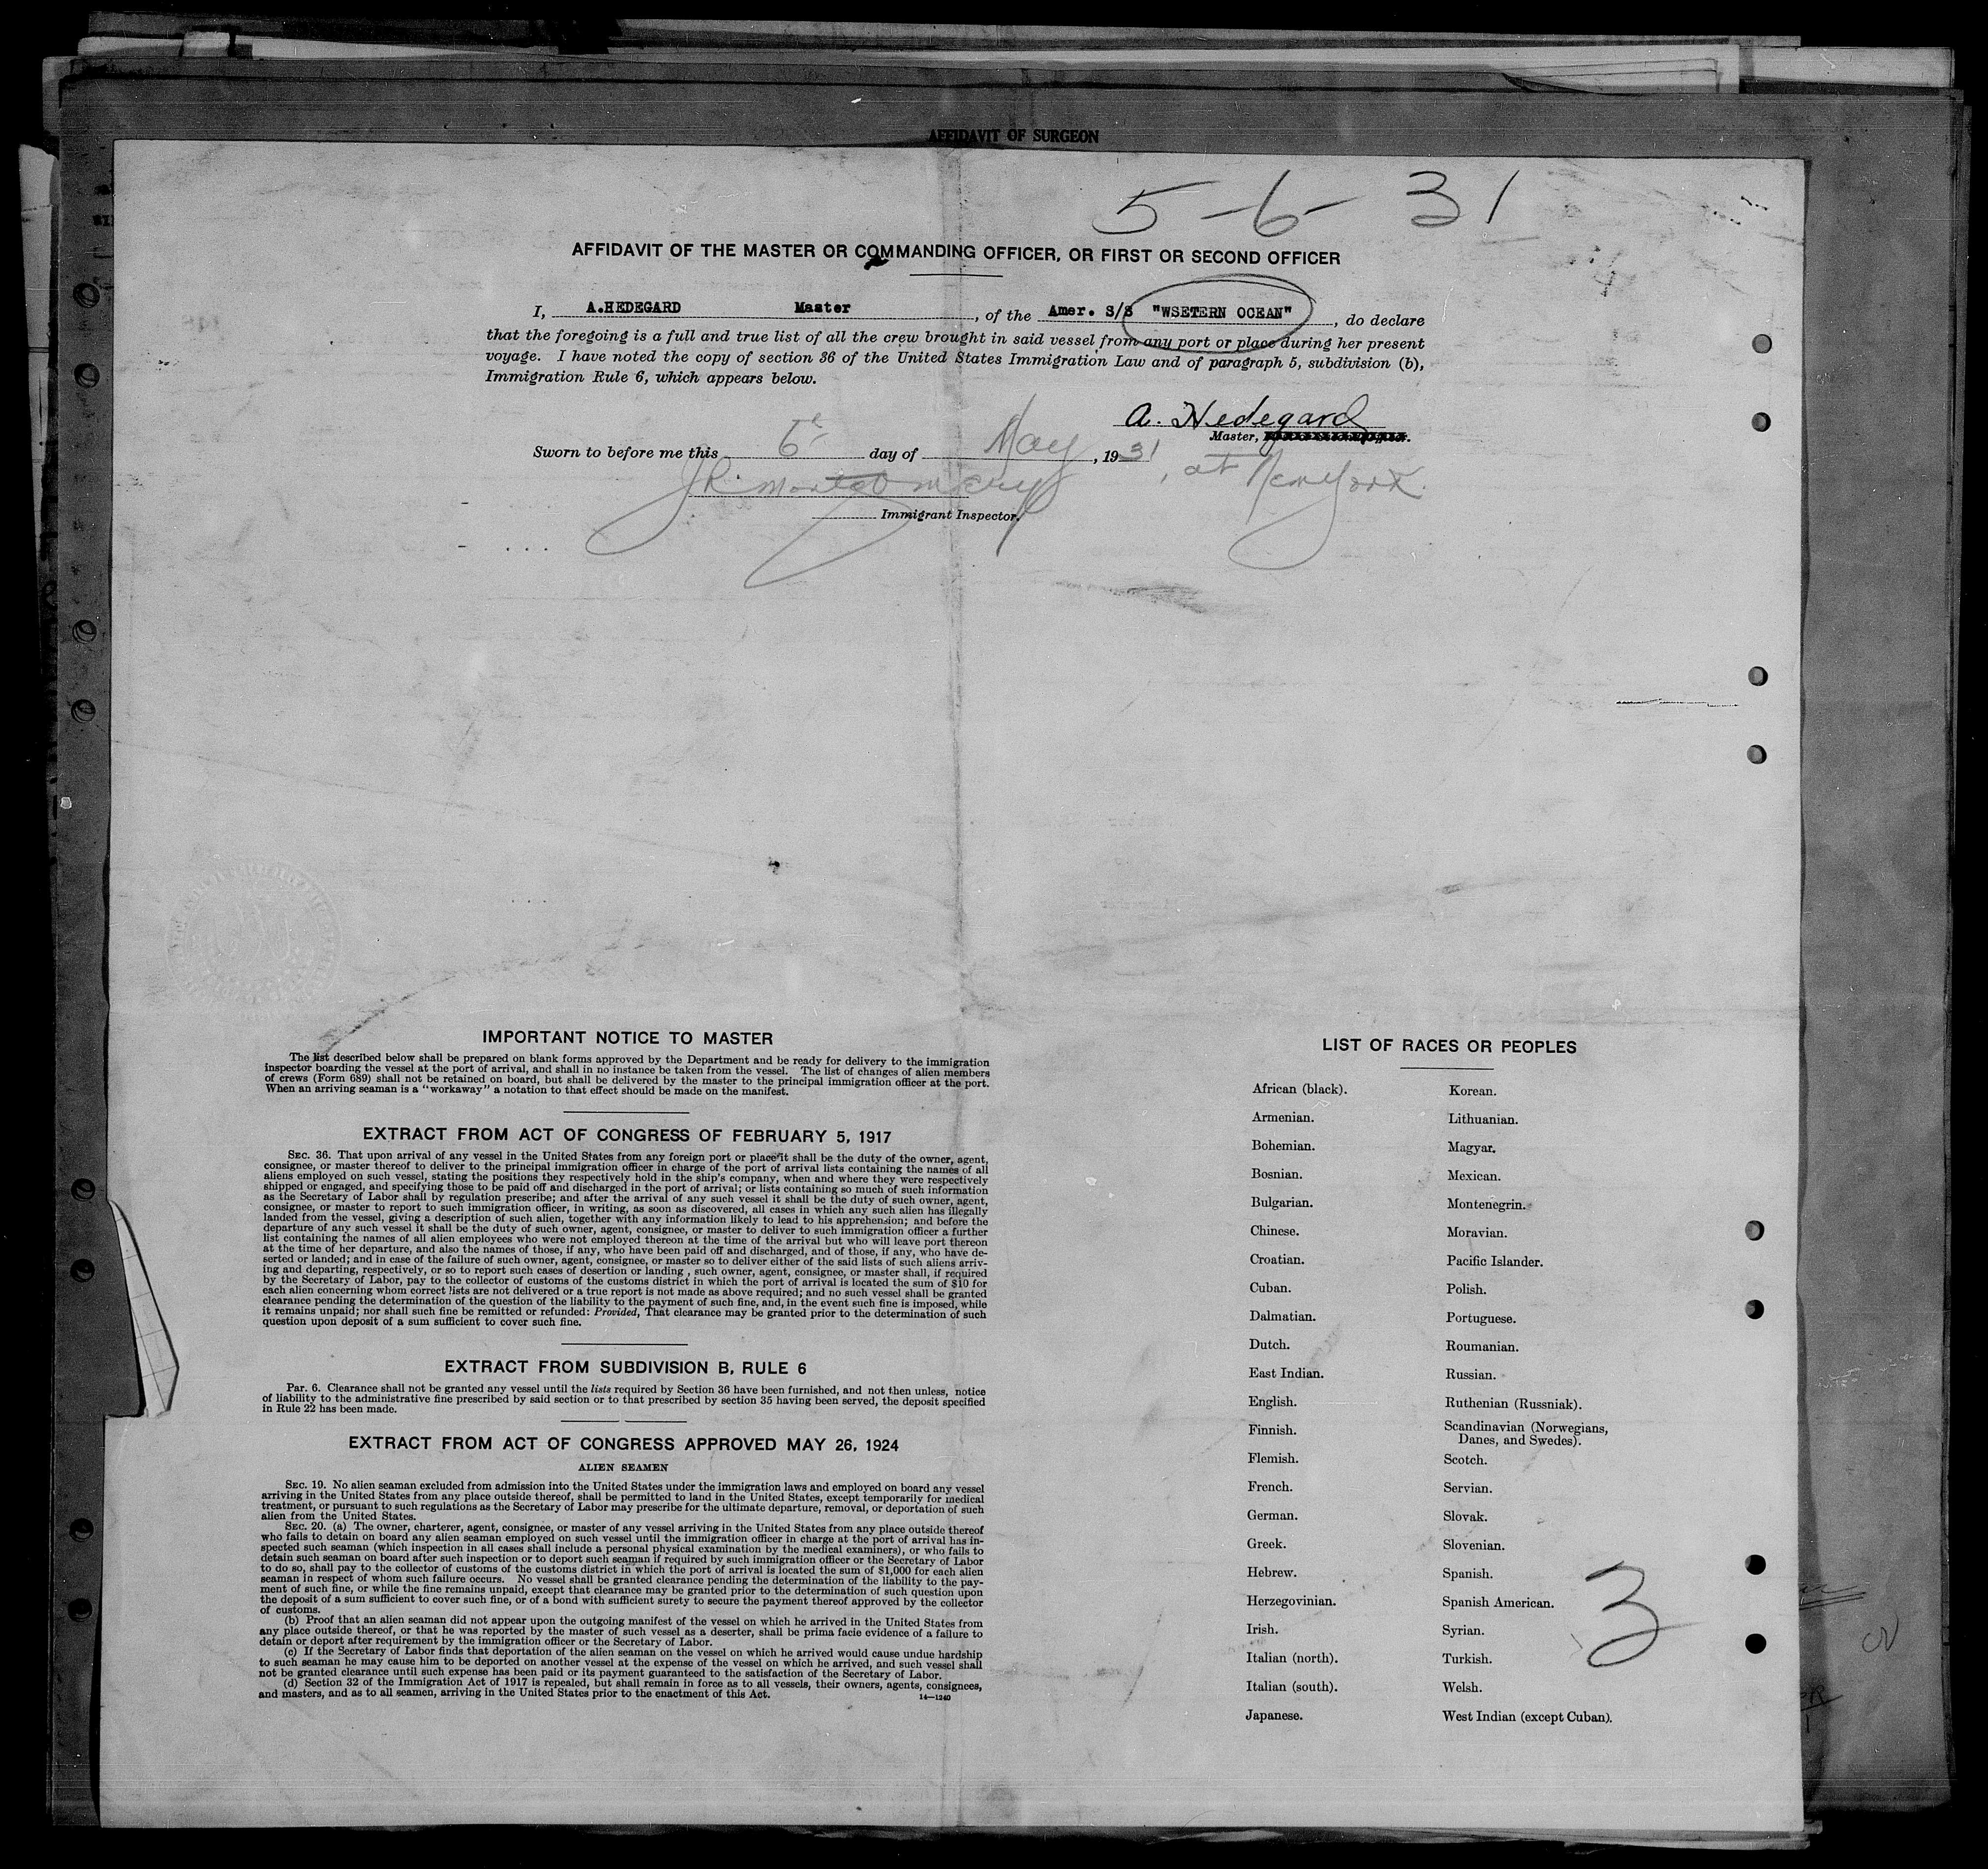 AFFIDAVIT OF SURGEON
5-6-31
AFFIDAVIT OF THE MASTER OR COMMANDING OFFICER, OR FIRST OR SECOND OFFICER
I, A.HEDEGARD Master, of the Amer. S/S "WSETERN OCEAN", do declare
that the foregoing is a full and true list of all the crew brought in said vessel from any port or place during her present
voyage. I have noted the copy of section 36 of the United States Immigration Law and of paragraph 5, subdivision (b),
Immigration Rule 6, which appears below.
A. Hedegard
Master,
Sworn to before me this 6th day of May, 1931, at New York.
Immigrant Inspector.
IMPORTANT NOTICE TO MASTER
The list described below shall be prepared on blank forms approved by the Department and be ready for delivery to the immigration
inspector boarding the vessel at the port of arrival, and shall in no instance be taken from the vessel. The list of changes of alien members
of crews (Form 689) shall not be retained on board, but shall be delivered by the master to the principal immigration officer at the port.
When an arriving seaman is a "workaway" a notation to that effect should be made on the manifest.
EXTRACT FROM ACT OF CONGRESS OF FEBRUARY 5, 1917
SEC. 36. That upon arrival of any vessel in the United States from any foreign port or place it shall be the duty of the owner, agent,
consignee, or master thereof to deliver to the principal immigration officer in charge of the port of arrival lists containing the names of all
aliens employed on such vessel, stating the positions they respectively hold in the ship's company, when and where they were respectively
shipped or engaged, and specifying those to be paid off and discharged in the port of arrival; or lists containing so much of such information
as the Secretary of Labor shall by regulation prescribe; and after the arrival of any such vessel it shall be the duty of such owner, agent,
consignee, or master to report to such immigration officer, in writing, as soon as discovered, all cases in which any such alien has illegally
landed from the vessel, giving a description of such alien, together with any information likely to lead to his apprehension; and before the
departure of any such vessel it shall be the duty of such owner, agent, consignee, or master to deliver to such immigration officer a further
list containing the names of all alien employees who were not employed thereon at the time of the arrival but who will leave port thereon
at the time of her departure, and also the names of those, if any, who have been paid off and discharged, and of those, if any, who have de-
serted or landed; and in case of the failure of such owner, agent, consignee, or master so to deliver either of the said lists of such aliens arriv-
ing and departing, respectively, or so to report such cases of desertion or landing , such owner, agent, consignee, or master shall, if required
by the Secretary of Labor, pay to the collector of customs of the customs district in which the port of arrival is located the sum of $10 for
each alien concerning whom correct lists are not delivered or a true report is not made as above required; and no such vessel shall be granted
clearance pending the determination of the question of the liability to the payment of such fine, and, in the event such fine is imposed, while
it remains unpaid; nor shall such fine be remitted or refunded: Provided, That clearance may be granted prior to the determination of such
question upon deposit of a sum sufficient to cover such fine.
EXTRACT FROM SUBDIVISION B, RULE 6
Par. 6. Clearance shall not be granted any vessel until the lists required by Section 36 have been furnished, and not then unless, notice
of liability to the administrative fine prescribed by said section or to that prescribed by section 35 having been served, the deposit specified
in Rule 22 has been made.
EXTRACT FROM ACT OF CONGRESS APPROVED MAY 26, 1924
ALIEN SEAMEN
SEC. 19. No alien seaman excluded from admission into the United States under the immigration laws and employed on board any vessel
arriving in the United States from any place outside thereof, shall be permitted to land in the United States, except temporarily for medical
treatment, or pursuant to such regulations as the Secretary of Labor may prescribe for the ultimate departure, removal, or deportation of such
alien from the United States.
SEC. 20. (a) The owner, charterer, agent, consignee, or master of any vessel arriving in the United States from any place outside thereof
who fails to detain on board any alien seaman employed on such vessel until the immigration officer in charge at the port of arrival has in-
spected such seaman (which inspection in all cases shall include a personal physical examination by the medical examiners), or who fails to
detain such seaman on board after such inspection or to deport such seaman if required by such immigration officer or the Secretary of Labor
to do so, shall pay to the collector of customs of the customs district in which the port of arrival is located the sum of $1,000 for each alien
seaman in respect of whom such failure occurs. No vessel shall be granted clearance pending the determination of the liability to the pay-
ment of such fine, or while the fine remains unpaid, except that clearance may be granted prior to the determination of such question upon
the deposit of a sum sufficient to cover such fine, or of a bond with sufficient surety to secure the payment thereof approved by the collector
of customs.
(b) Proof that an alien seaman did not appear upon the outgoing manifest of the vessel on which he arrived in the United States from
any place outside thereof, or that he was reported by the master of such vessel as a deserter, shall be prima facie evidence of a failure to
detain or deport after requirement by the immigration officer or the Secretary of Labor.
(c) If the Secretary of Labor finds that deportation of the alien seaman on the vessel on which he arrived would cause undue hardship
to such seaman he may cause him to be deported on another vessel at the expense of the vessel on which he arrived, and such vessel shall
not be granted clearance until such expense has been paid or its payment guaranteed to the satisfaction of the Secretary of Labor.
(d) Section 32 of the Immigration Act of 1917 is repealed, but shall remain in force as to all vessels, their owners, agents, consignees,
and masters, and as to all seamen, arriving in the United States prior to the enactment of this Act.
14—1240
LIST OF RACES OR PEOPLES
African (black).
Armenian.
Bohemian.
Bosnian.
Bulgarian.
Chinese.
Croatian.
Cuban.
Dalmatian.
Dutch.
East Indian.
English.
Finnish.
Flemish.
French.
German.
Greek.
Hebrew.
Herzegovinian.
Irish.
Italian (north).
Italian (south).
Japanese.
Korean.
Lithuanian.
Magyar.
Mexican.
Montenegrin.
Moravian.
Pacific Islander.
Polish.
Portuguese.
Roumanian.
Russian.
Ruthenian (Russniak).
Scandinavian (Norwegians,
Danes, and Swedes).
Scotch.
Servian.
Slovak.
Slovenian.
Spanish.
Spanish American.
Syrian.
Turkish.
Welsh.
West Indian (except Cuban).
3